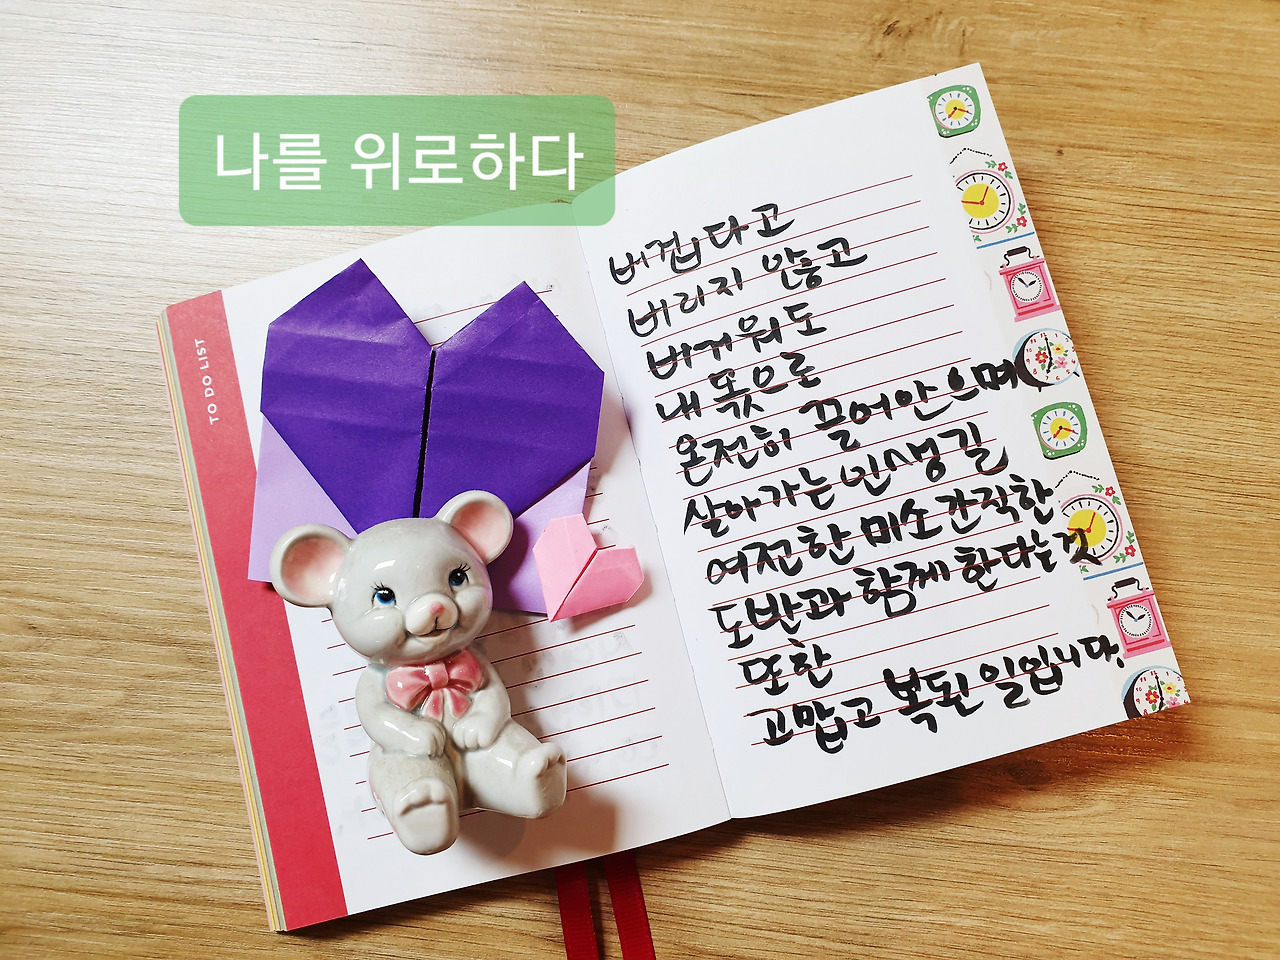 나를 위로하다
TO DO LIST
버겁다고
버리지 않고
버거워도
내 몫으로
온전히 끌어안으며
살아가는 인생길
여전한 미소 간직한
도반과 함께 한다는 것
또한
고맙고 복된 일입니다.